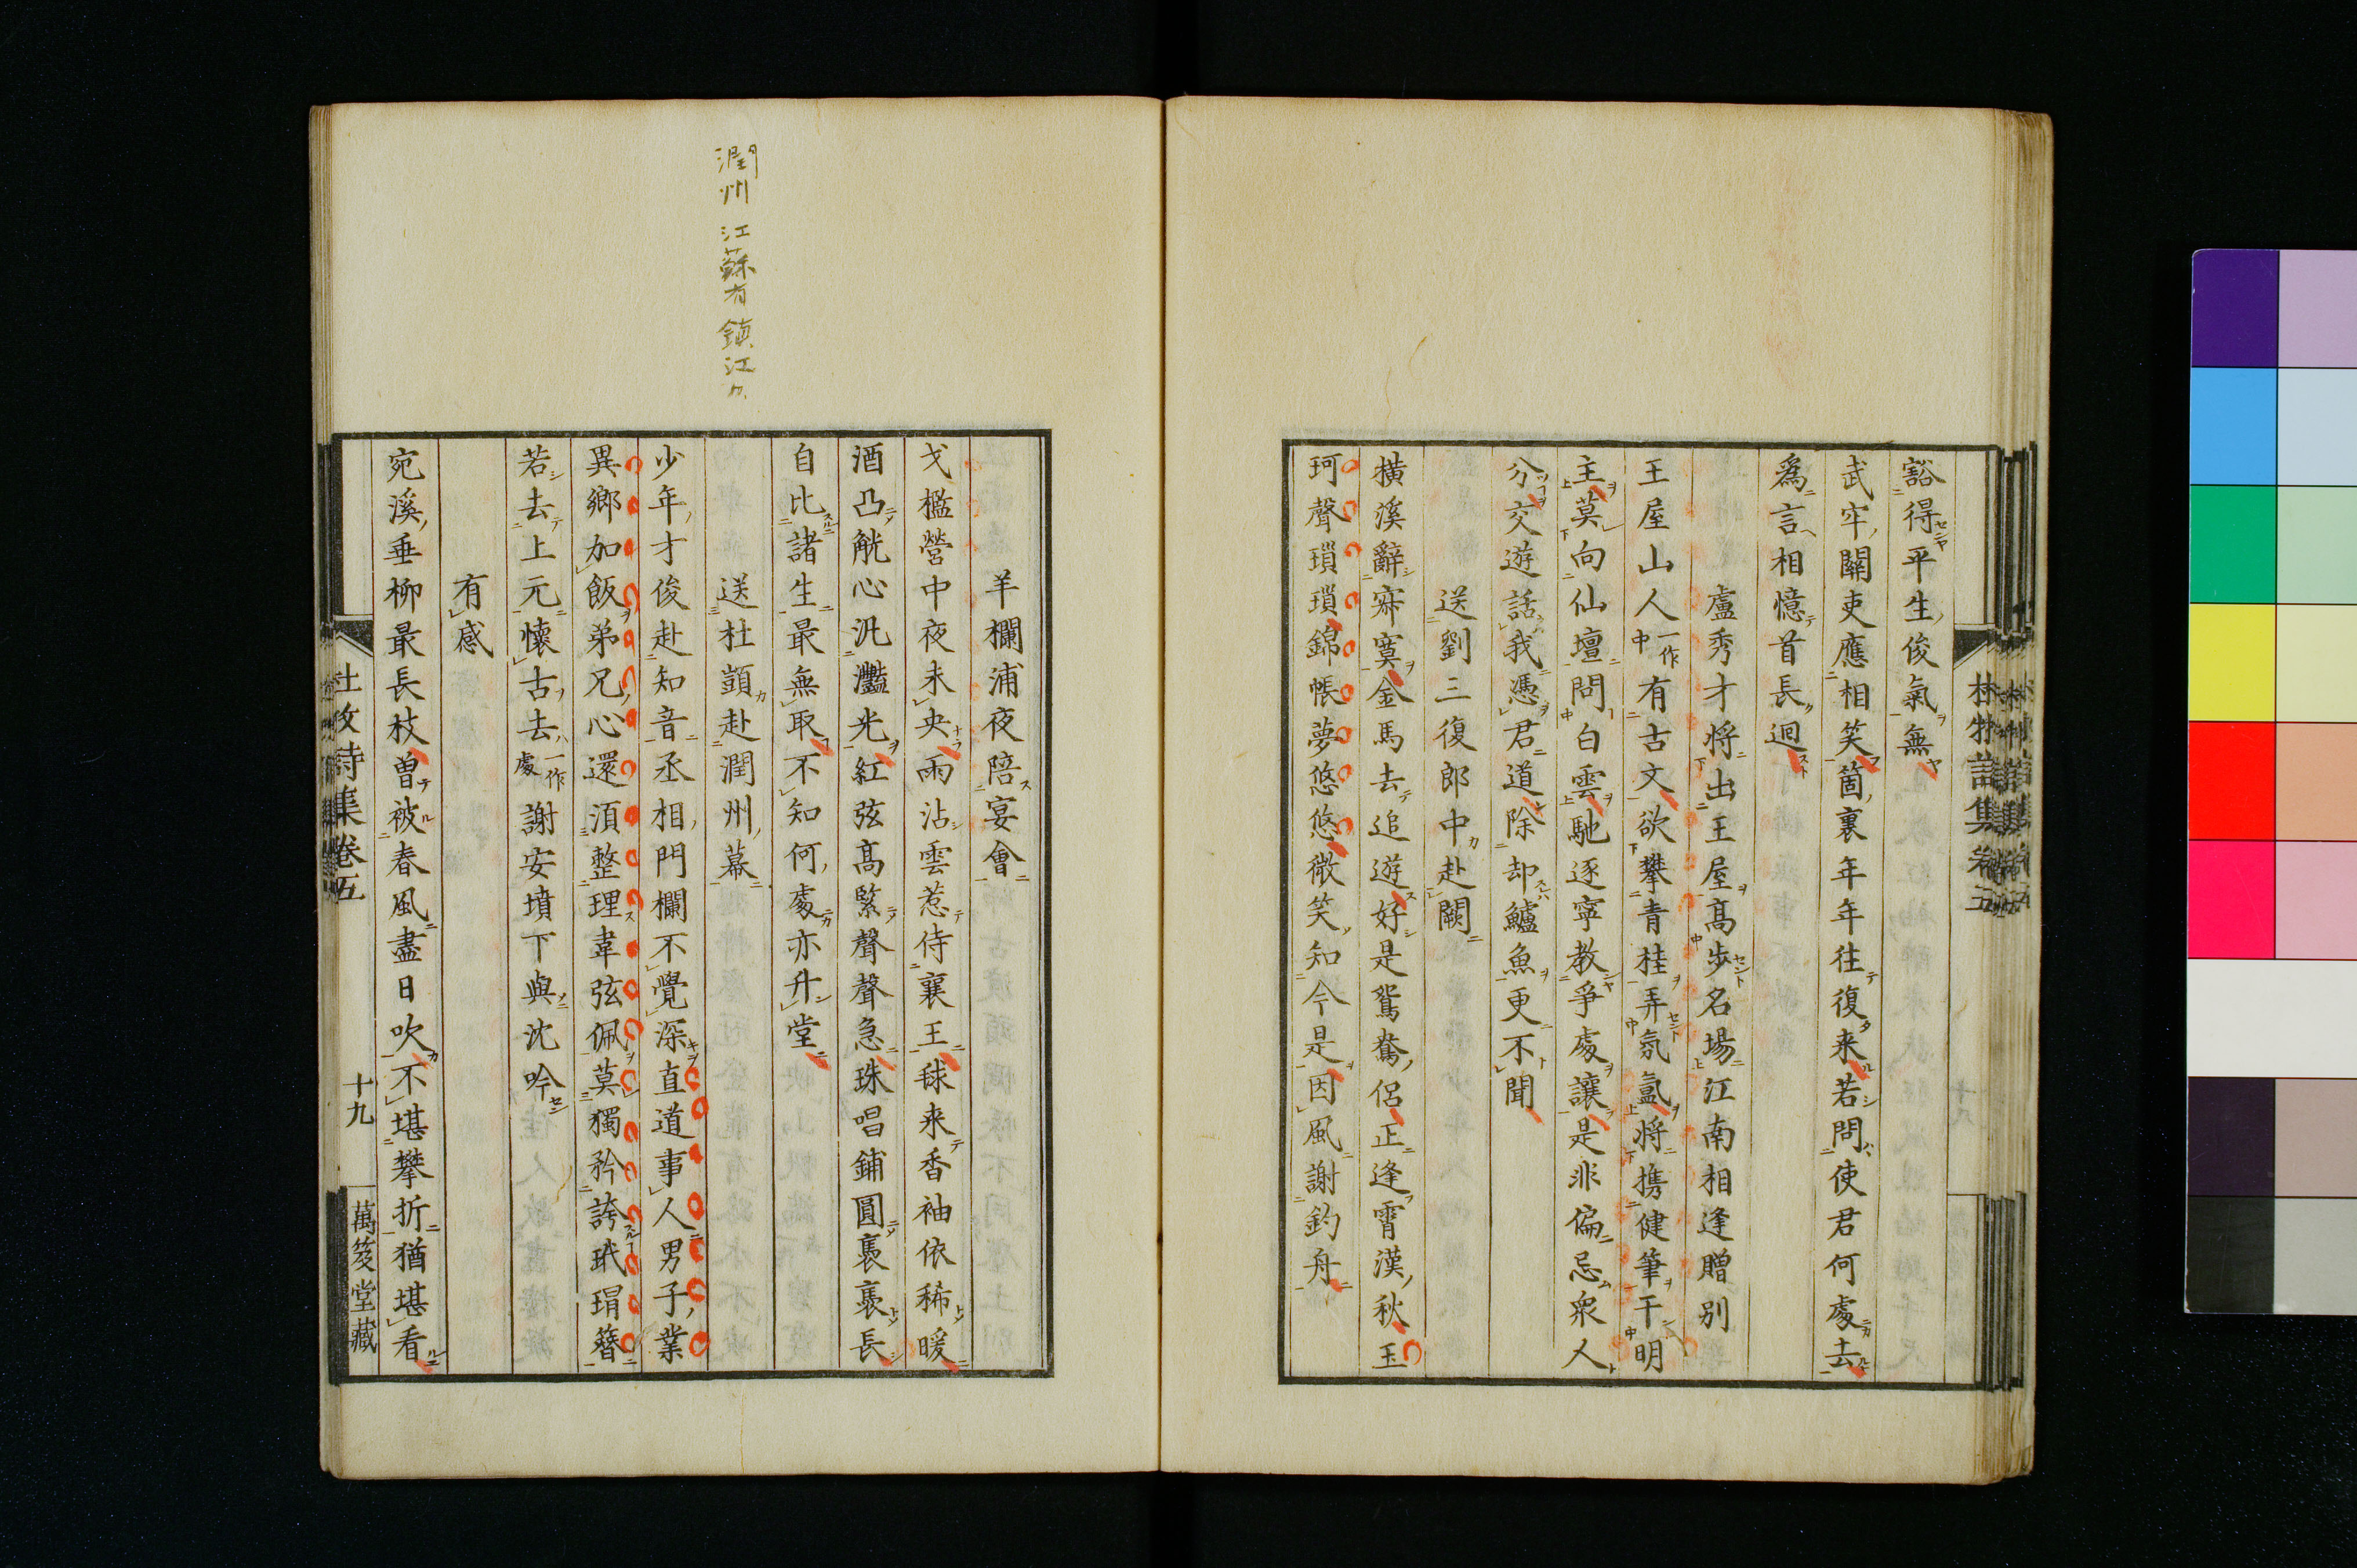 豁得平生俊氣無
武牢關吏應相笑箇裏年年往復来若問使君何處去
爲言相憶首長迴
盧秀才將出王屋髙步名場江南相逢贈别
王屋山人一作中有古文欲攀青桂弄氛氲將携健筆干明
主莫向仙壇問白雲馳逐寧教爭處讓是非偏忌衆人
分交遊話我憑君道除却鱸魚更不聞
送劉三復郎中赴闕
横溪辭寂寞金馬去追遊好是鴛鴦侣正逢霄漢秋玉
珂聲瑣瑣錦帳夢悠悠微笑知今是因風謝釣舟
羊欄浦夜陪宴會
戈檻營中夜未央雨沾雲惹侍襄王毬来香袖依稀暖
酒凸觥心汎灩光紅弦髙緊聲聲急珠唱鋪圓裊裊長
自比諸生最無取不知何處亦升堂
送杜顗赴潤州幕
少年才俊赴知音丞相門欄不覺深直道事人男子業
異鄉加飯弟兄心還須整理韋弦佩莫獨矜誇玳瑁簪
若去上元懷古去一作處謝安墳下與沈吟
有感
宛溪垂柳最長枝曽被春風盡日吹不堪攀折猶堪看
杜牧詩集卷五
十九
萬笈堂藏
潤州 江蘇省 鎮江